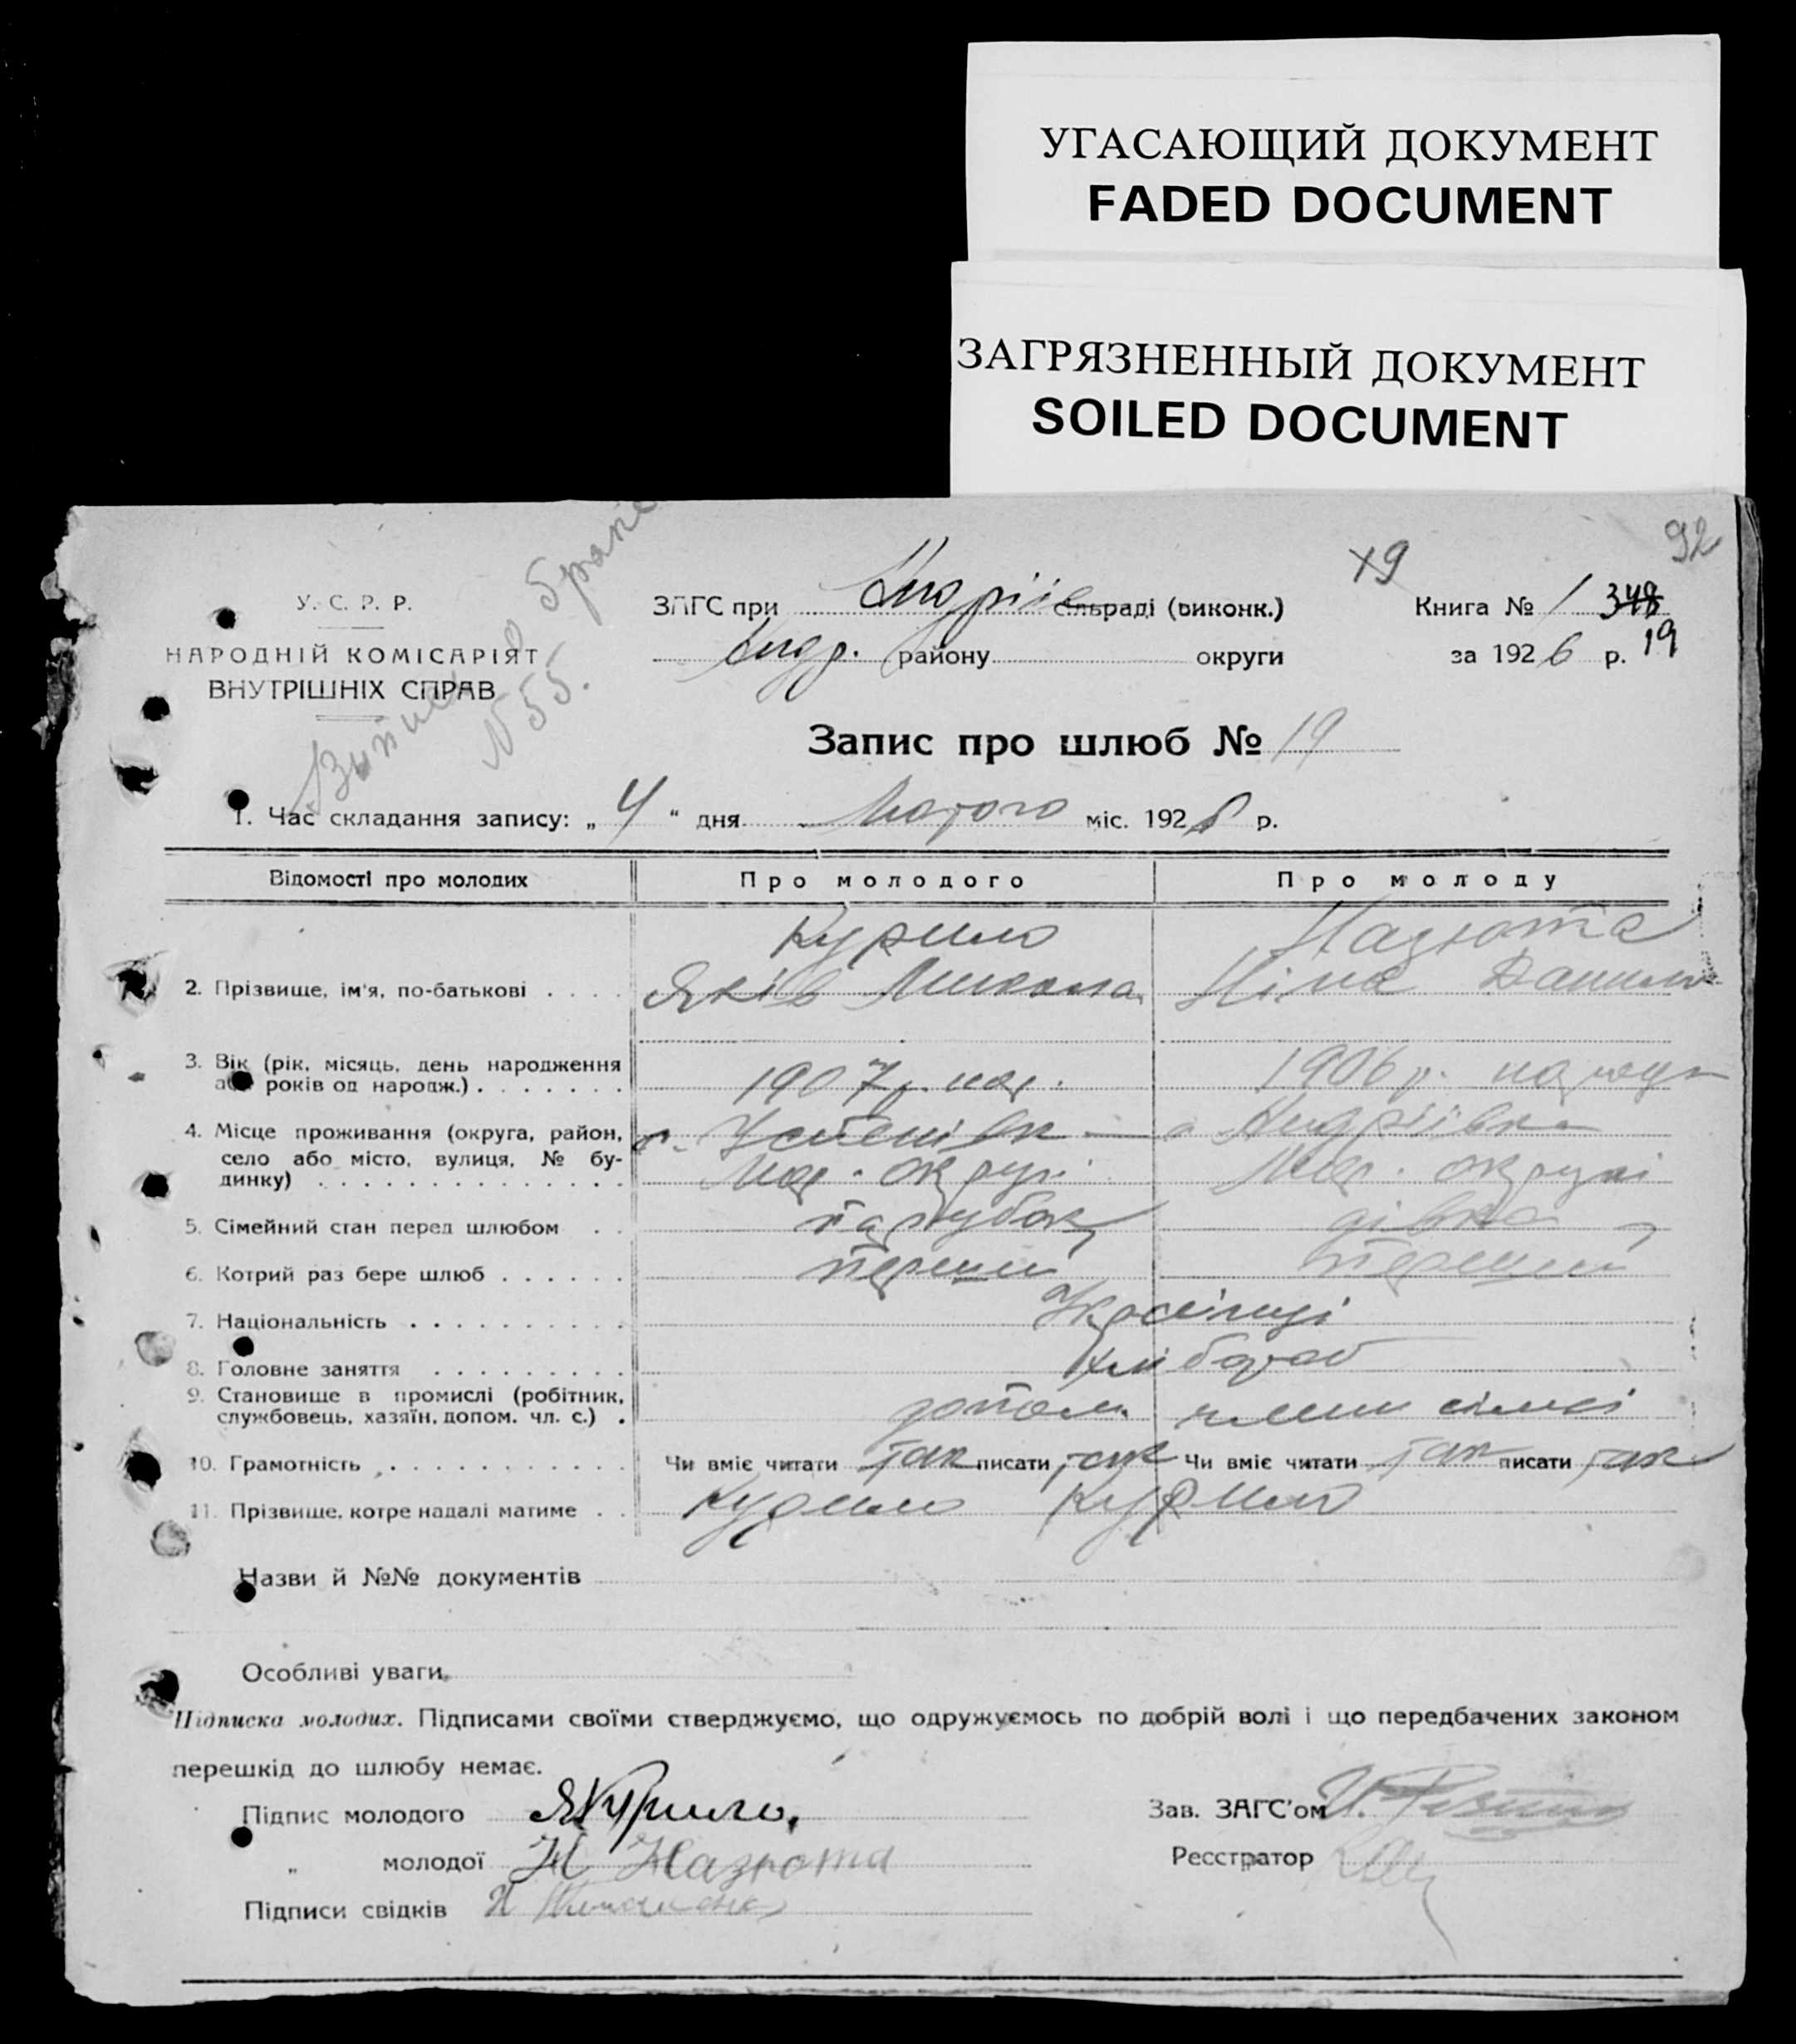 УГАСАЮЩИЙ ДОКУМЕНТ
FADED DOCUMENT
ЗАГРЯЗНЕННЫЙ ДОКУМЕНТ
SOILED DOCUMENT
92
У. С. Р. Р.
НАРОДНІЙ КОМІСАРІЯТ
ВНУТРІШНІХ СПРАВ
N 55.
ЗАГС при Андріїв сільраді (виконк.)
Андр. району округи
Книга № 1 348
за 1926 р. 19
Запис про шлюб № 19
1. Час складання запису: „ 4 “ дня Лютого міс. 1926 р.
Відомості про молодих Про молодого Про молоду
Курило Назюта
2. Прізвище, ім'я, по-батькові . . . . Яків Микола Ніна Данил
3. Вік (рік, місяць, день народження
або років од нароdж.) . . . . . . . 1907 р. нар. 1906 р.
4. Місце проживання (округа, район, с. Успенівк с Андріївка
село або місто, вулиця, № бу-
динку) . . . . . . . . . . . . . . Мар. округі Мар. округі
5. Сімейний стан перед шлюбом . . парубок дівка
6. Котрий раз бере шлюб . . . . . . перший перший
7. Національність . . . . . . . . . . Українці
8. Головне заняття . . . . . . . . . хлібороб
9. Становище в промислі (робітник,
службовець, хазяїн, допом. чл. с.) . допом. члени сімьї
10. Грамотність . . . . . . . . . . . Чи вміє читати так писати так Чи вміє читати так писати так
11. Прізвище, котре надалі матиме . . Курило Курило
Назви й №№ документів
Особливі уваги
Підписка молодих. Підписами своїми стверджуємо, що одружуємось по добрій волі і що передбачених законом
перешкід до шлюбу немає.
Підпис молодого ЯКурило, Зав. ЗАГС'ом
„ молодої Н Назюта Реєстратор
Підписи свідків